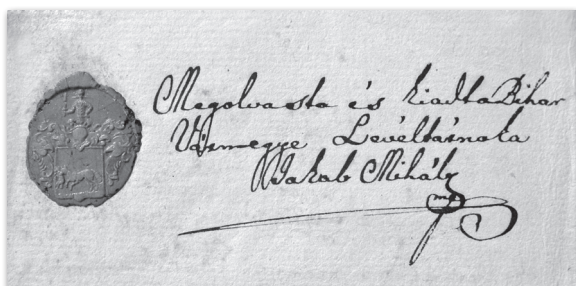 Megolvasta és kiadta Bihar
Vármegye Levéltárnoka
Jakab Mihály
mp